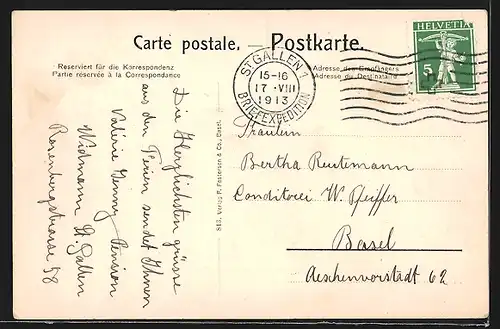 Carte postale. — Postkarte.
Reserviert für die Korrespondenz
Partie réservée à la Correspondance
Adresse des Empfängers
Adresse du Destinataire
HELVETIA
5
ST GALLEN 1
15-16
17.VIII
1913
BRIEFEXPEDITION
Die Herzlichsten grüsse
aus den Ferien sendet Ihnen
Valérie Jenny Pension
Widmann St. Gallen
Rosenbergstrasse 58
Verlag F. Festersen & Co., Basel.
Fräulein
Bertha Reutemann
Conditorei W. Pfeiffer
Basel
Aeschenvorstadt 62